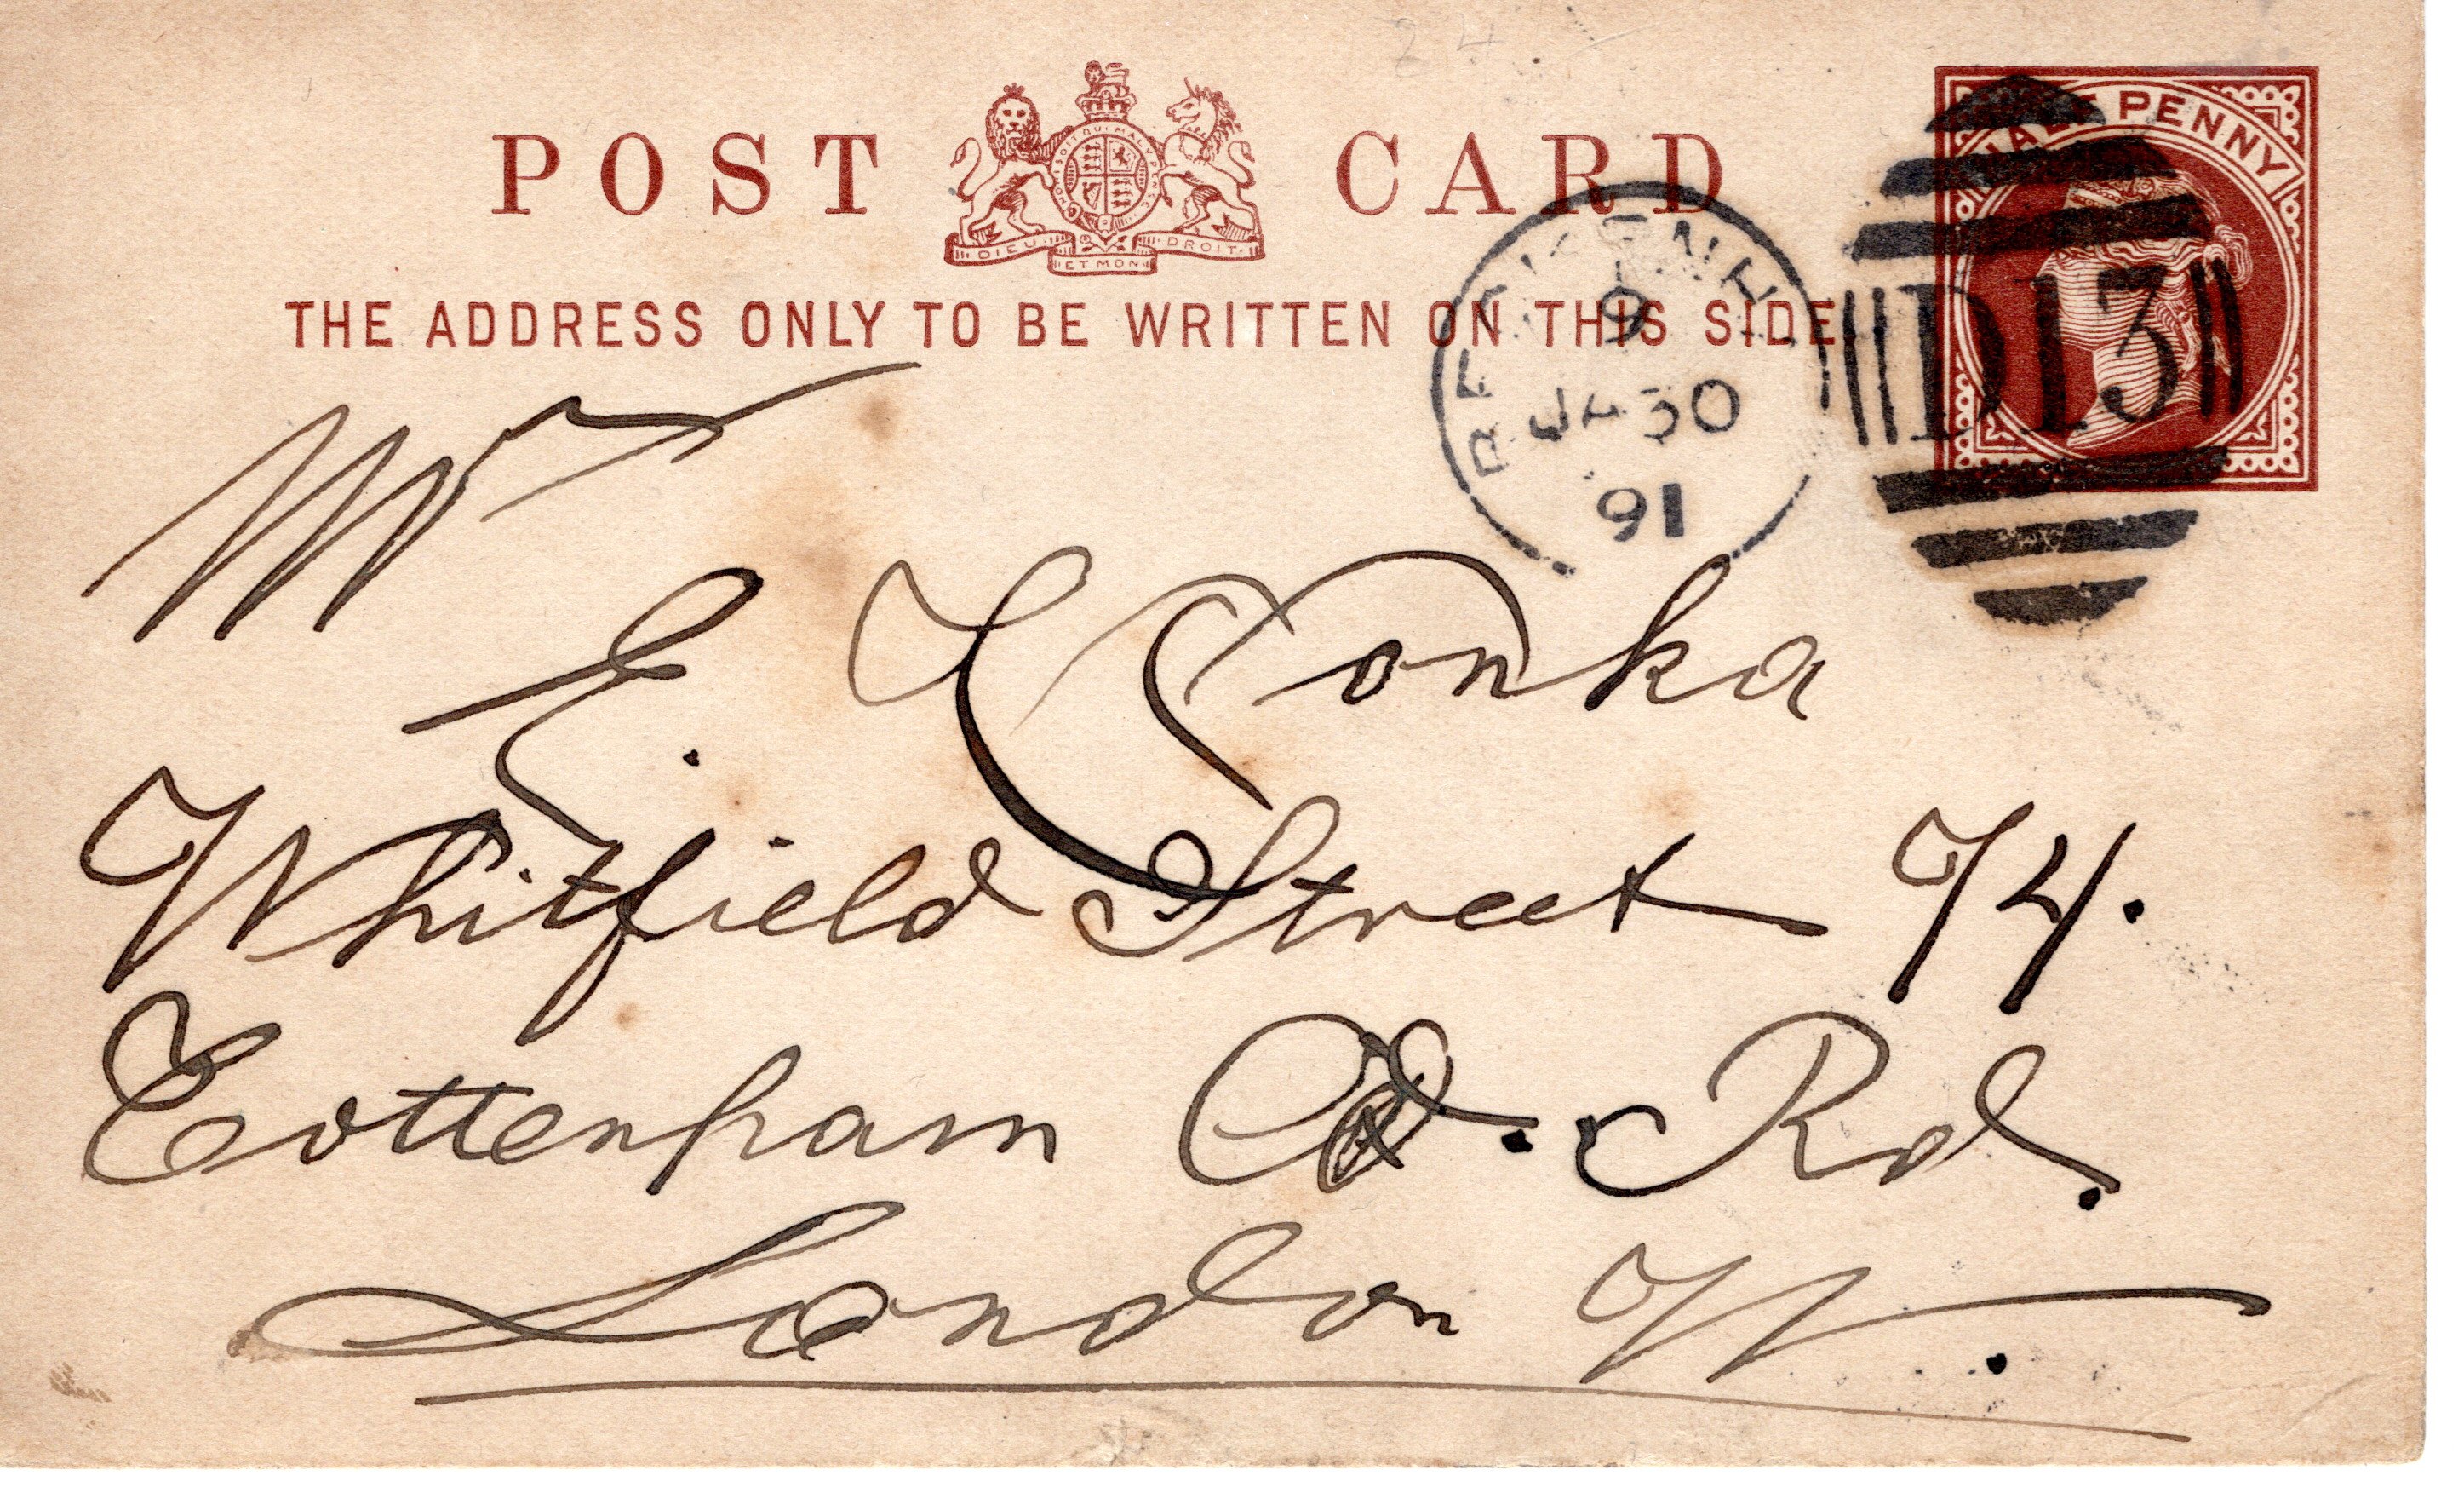 POST CARD
HONI SOIT QUI MAL Y PENSE
DIEU ET MON DROIT
HALF PENNY
THE ADDRESS ONLY TO BE WRITTEN ON THIS SIDE
JA 30
91
D13
Mr
E.
Whitfield Street 74.
Tottenham Ct. Rd.
London W.